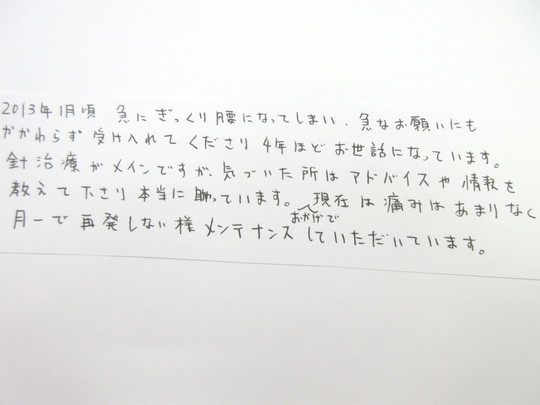 2013年1月頃 急にぎっくり腰になってしまい、急なお願いにも
かかわらず受け入れてくださり4年ほどお世話になっています。
針治療がメインですが、気づいた所はアドバイスや情報を
教えて下さり本当に助っています。おかげで現在は痛みはあまりなく
月一で再発しない様メンテナンスしていただいています。